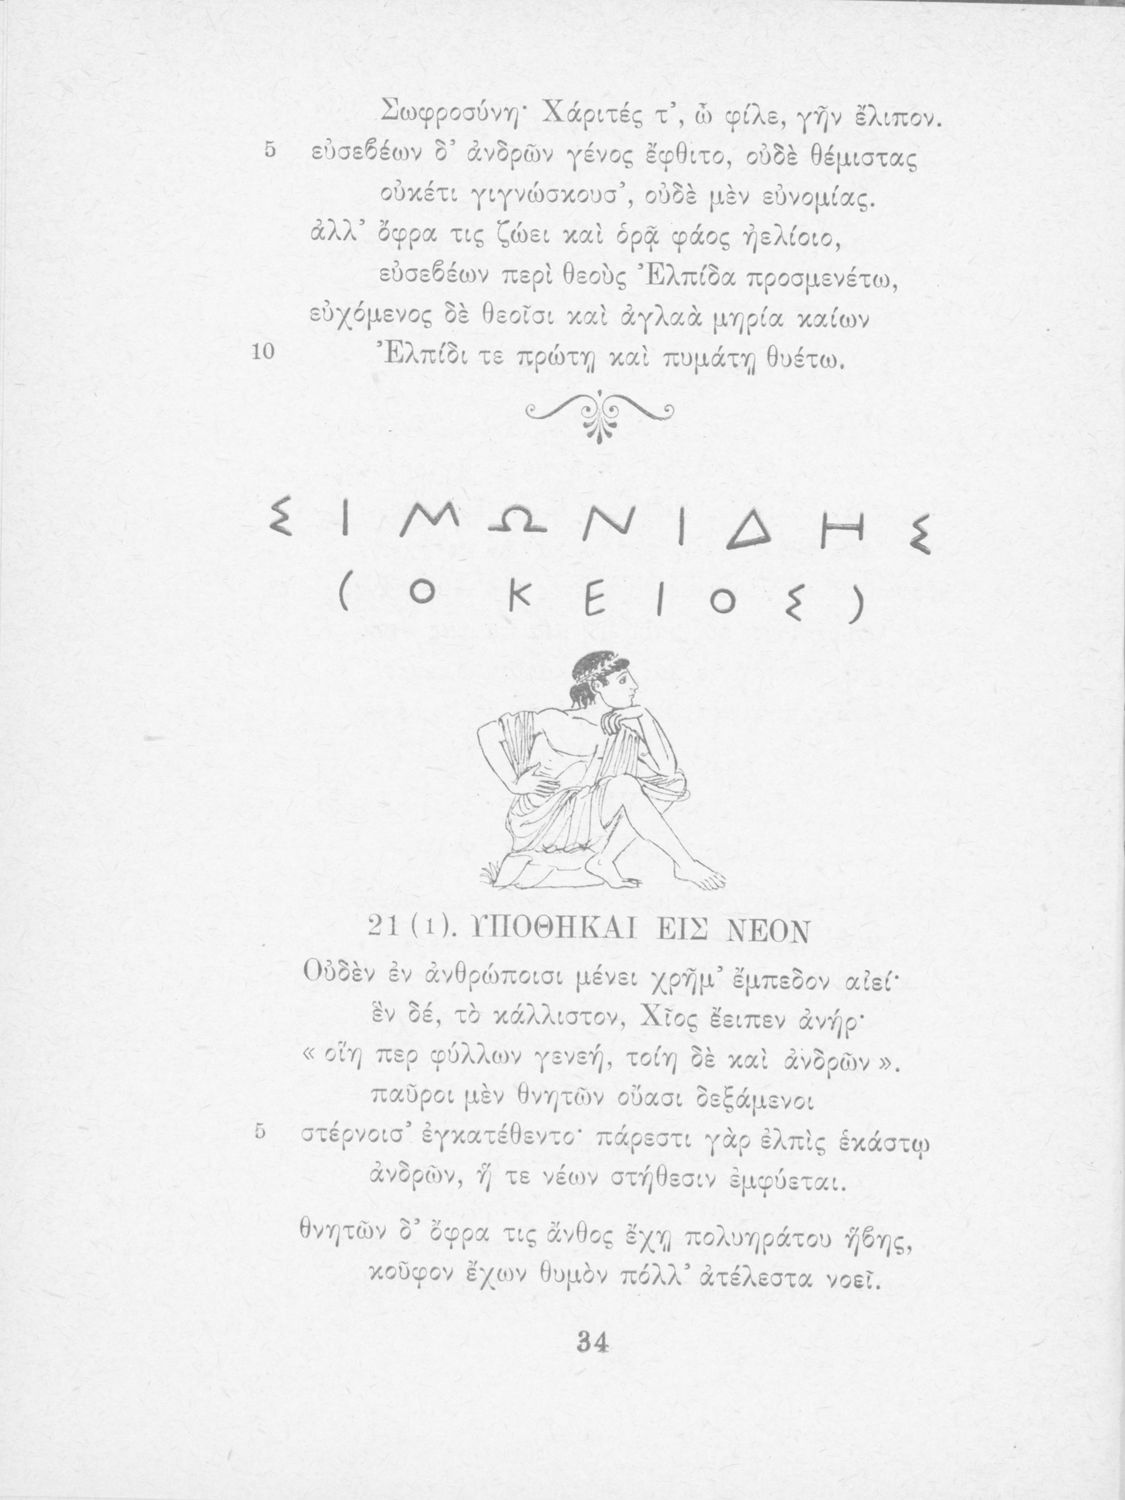 Σωφροσύνη· Χάριτές τ', ὦ φίλε, γῆν ἔλιπον.
5 εὐσεβέων δ' ἀνδρῶν γένος ἔφθιτο, οὐδὲ θέμιστας
οὐκέτι γιγνώσκουσ', οὐδὲ μὲν εὐνομίας.
ἀλλ' ὄφρα τις ζώει καὶ ὁρᾷ φάος ἠελίοιο,
εὐσεβέων περὶ θεοὺς Ἐλπίδα προσμενέτω,
εὐχόμενος δὲ θεοῖσι καὶ ἀγλαὰ μηρία καίων
10 Ἐλπίδι τε πρώτῃ καὶ πυμάτῃ θυέτω.
ΣΙΜΩΝΙΔΗΣ
(Ο ΚΕΙΟΣ)
21 (1). ΥΠΟΘΗΚΑΙ ΕΙΣ ΝΕΟΝ
Οὐδὲν ἐν ἀνθρώποισι μένει χρῆμ' ἔμπεδον αἰεί·
ἓν δέ, τὸ κάλλιστον, Χῖος ἔειπεν ἀνήρ·
« οἵη περ φύλλων γενεή, τοίη δὲ καὶ ἀνδρῶν ».
παῦροι μὲν θνητῶν οὔασι δεξάμενοι
5 στέρνοισ' ἐγκατέθεντο· πάρεστι γὰρ ἐλπὶς ἑκάστῳ
ἀνδρῶν, ἥ τε νέων στήθεσιν ἐμφύεται.
θνητῶν δ' ὄφρα τις ἄνθος ἔχῃ πολυηράτου ἥβης,
κοῦφον ἔχων θυμὸν πόλλ' ἀτέλεστα νοεῖ.
34